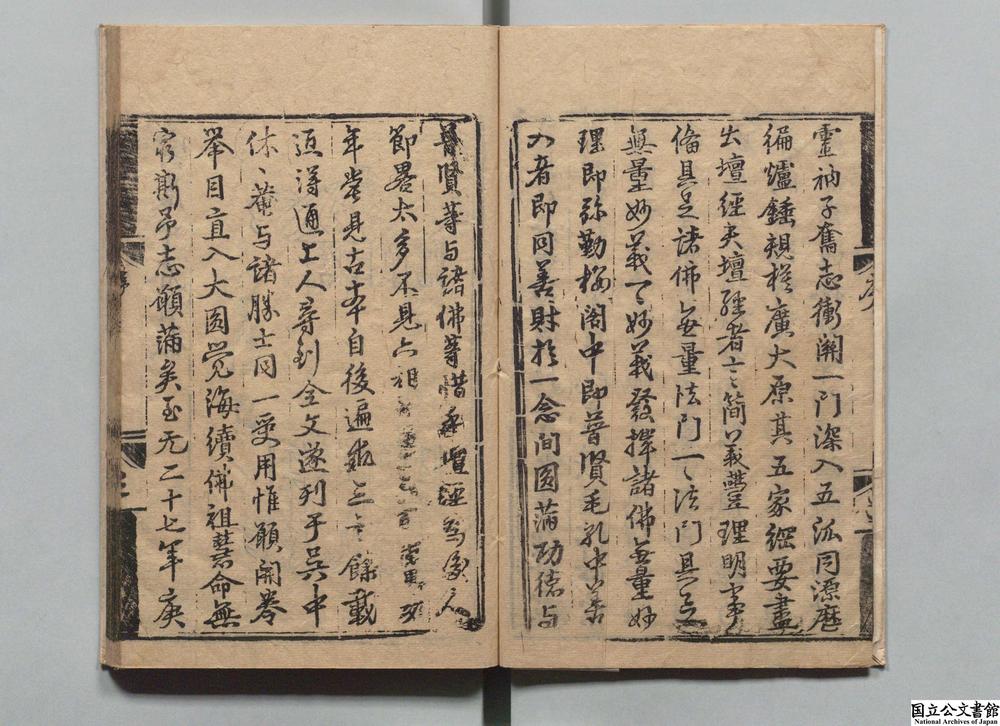 靈衲子奮志衝開一門深入五派同源歷
徧爐錘規模廣大原其五家綱要盡
出壇經夫壇經者言簡義豐理明事
俻具足諸佛無量法門一々法門具足
無量妙義一々妙義發揮諸佛無量妙
理即弥勒楼閣中即普賢毛孔中善
入者即同善財於一念间圆蒲功德与
普賢等与諸佛等惜乎壇經為後人
節畧太多不見六祖
年甞見古本自後遍求三十餘載
近淂通上人尋到全文遂刋于吳中
休々菴与諸勝士同一受用惟願開卷
举目直入大圆觉海續佛祖慧命無
窮斯予志願蒲矣至元二十七年庚
序
国立公文書館
National Archives of Japan